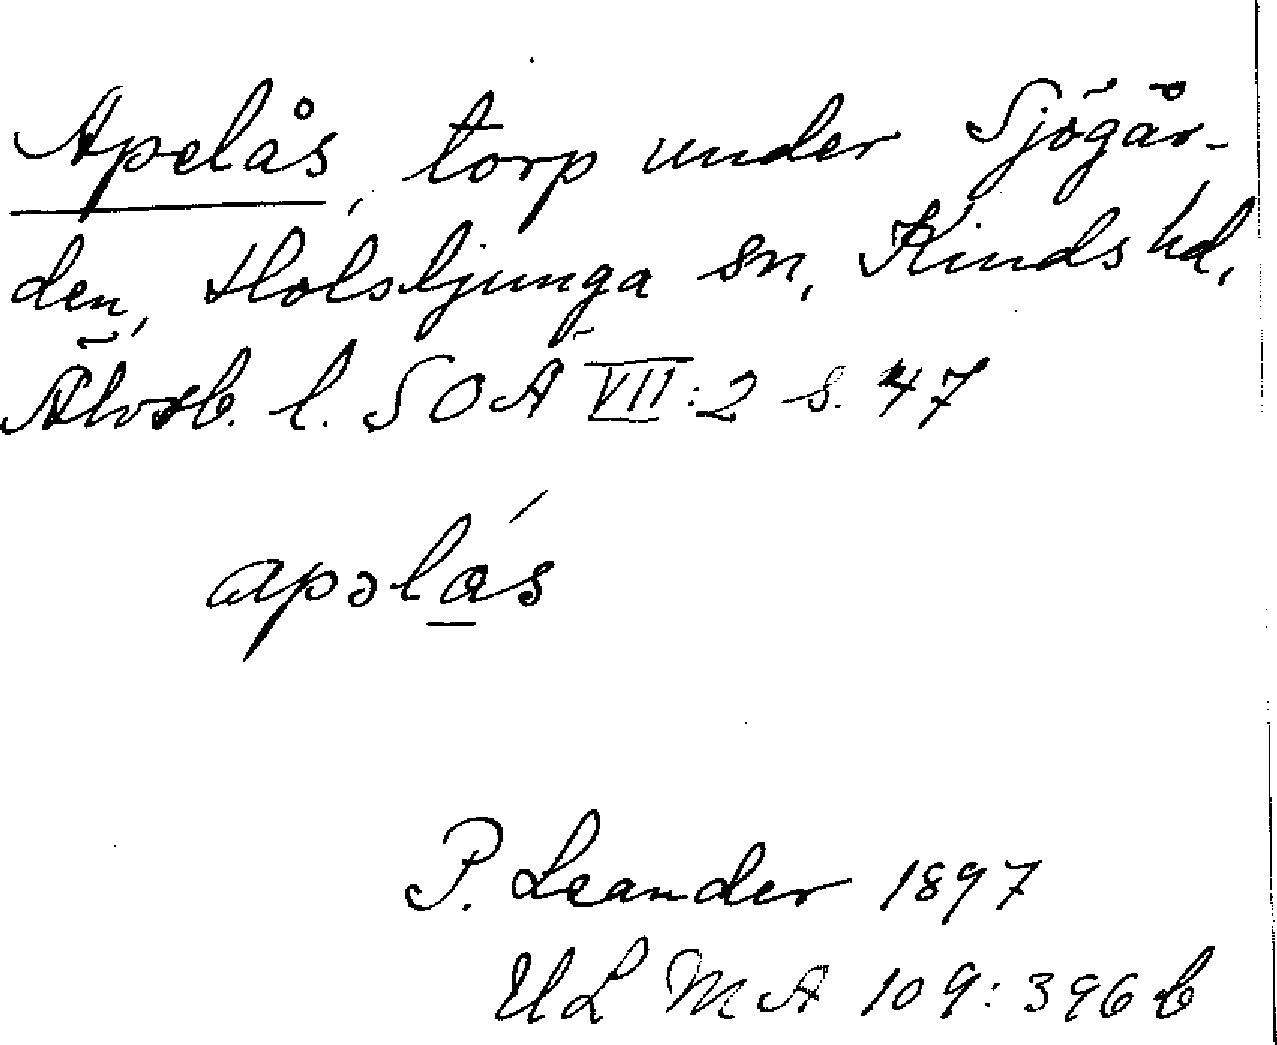 Apelås, torp under Sjögår-
den, Holsljunga sn, Kinds hd,
Älvsb. l. SOÄ VII:2 s. 47
apəlås
P. Leander 1897
ULMA 109:396 b